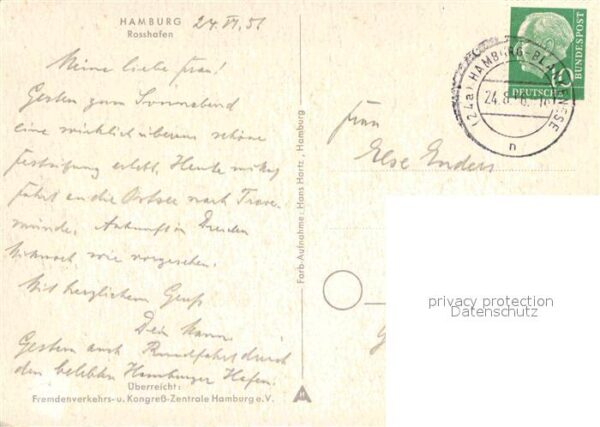 HAMBURG
Rosshafen
24. VI. 5
Meine liebe Frau!
Gestern zum Sonnabend
eine wirklich überaus schöne
erlebt. Heute
fahrt an die Ostsee nach Trave-
münde. Ankunft in Dresden
Mittwoch, wie vorgesehen.
Mit herzlichem Gruß
Dein
Gestern auch Rundfahrt durch
den belebten Hamburger Hafen.
Überreicht:
Fremdenverkehrs- u. Kongreß-Zentrale Hamburg e.V.
Farb-Aufnahme: Hans Hartz, Hamburg
H
DEUTSCHE
BUNDESPOST
10
(24a) HAMBURG-BLANKENESE
24.8
n
Frau
Else Enders
privacy protection
Datenschutz